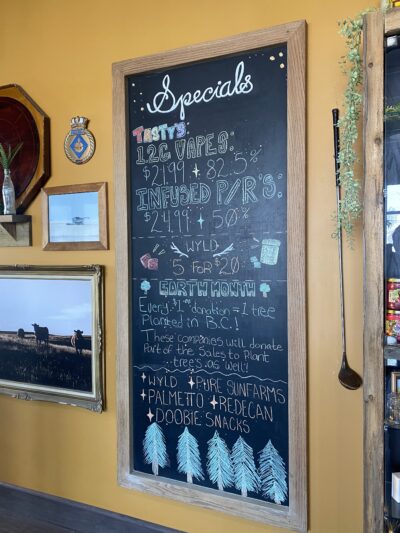 Specials
TASTY'S:
1.2G VAPES:
$21.99 + 82.5%
INFUSED P/R'S:
$24.99 + 50%
WYLD
5 FOR $20
EARTH MONTH
Every $1.00 donation = 1 tree
Planted in B.C.!
These companies will donate
Part of the Sales to Plant
trees as well!
WYLD PURE SUNFARMS
PALMETTO REDECAN
DOOBIE SNACKS